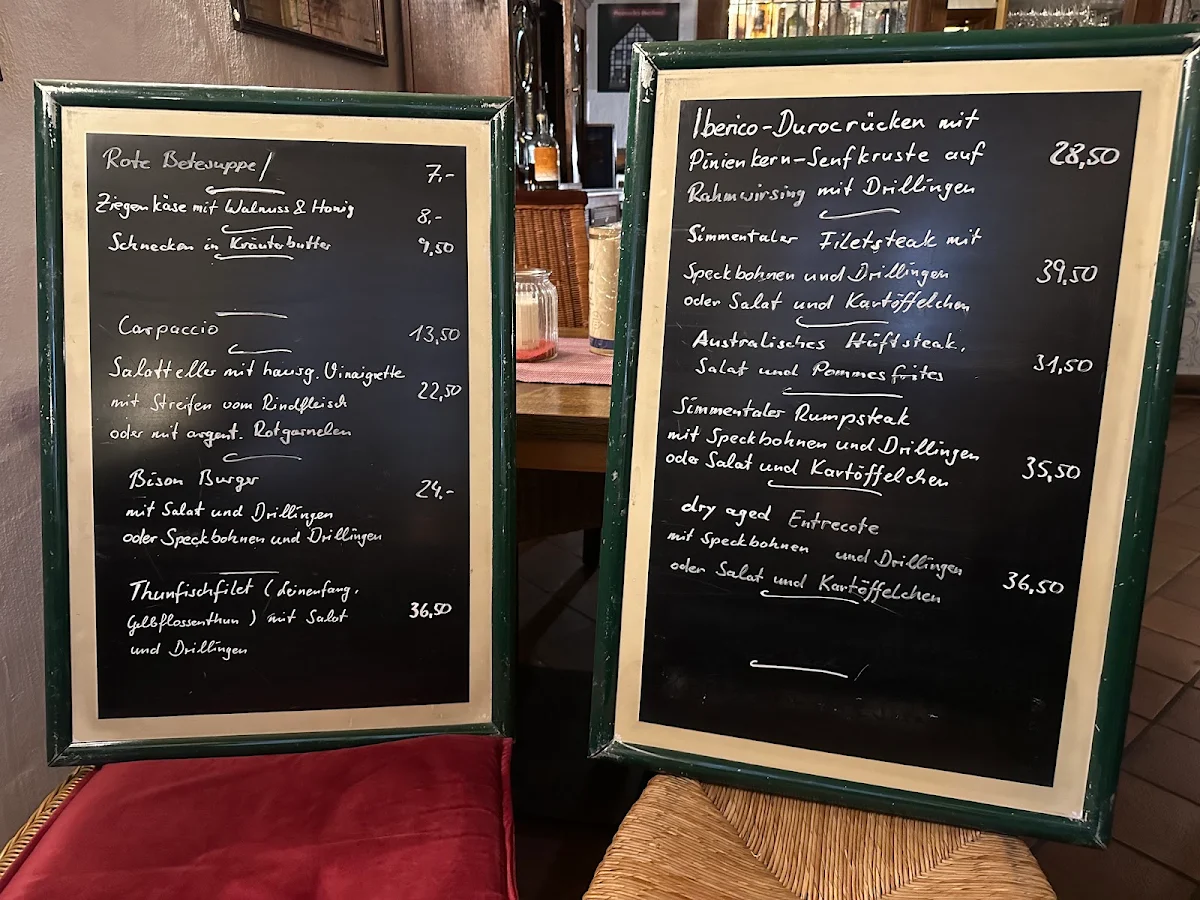 Rote Betesuppe/ 7,-
Ziegenkäse mit Walnuss & Honig 8,-
Schnecken in Kräuterbutter 9,50
Carpaccio 13,50
Salatteller mit hausg. Vinaigrette
mit Streifen vom Rindfleisch 22,50
oder mit argent. Rotgarnelen
Bison Burger 24,-
mit Salat und Drillingen
oder Speckbohnen und Drillingen
Thunfischfilet (Leinenfang,
Gelbflossenthun) mit Salat 36,50
und Drillingen
Iberico-Durocrücken mit
Pinienkern-Senfkruste auf 28,50
Rahmwirsing mit Drillingen
Simmentaler Filetsteak mit
Speckbohnen und Drillingen 39,50
oder Salat und Kartöffelchen
Australisches Hüftsteak,
Salat und Pommes frites 31,50
Simmentaler Rumpsteak
mit Speckbohnen und Drillingen
oder Salat und Kartöffelchen 35,50
dry aged Entrecote
mit Speckbohnen und Drillingen
oder Salat und Kartöffelchen 36,50